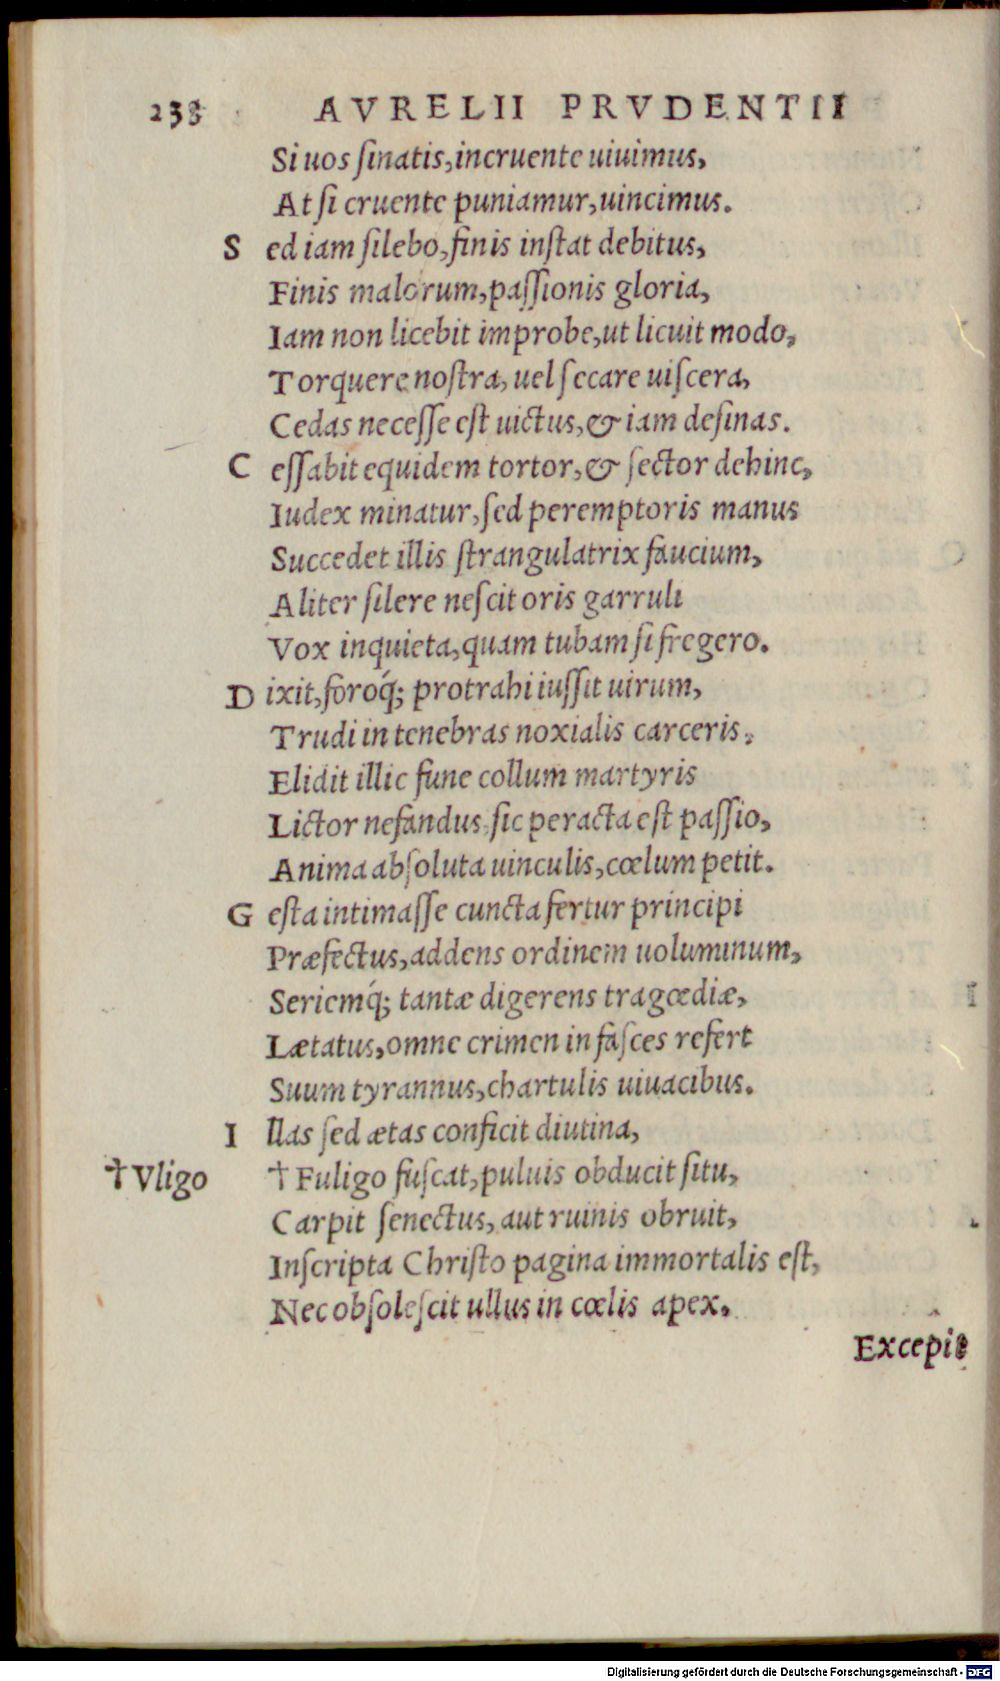 238 AVRELII PRVDENTII
Si uos ſinatis, incruente uiuimus,
At ſi cruente puniamur, uincimus.
S ed iam ſilebo, finis inſtat debitus,
Finis malorum, paſſionis gloria,
Iam non licebit improbe, ut licuit modo,
Torquere noſtra, uel ſecare uiſcera,
Cedas neceſſe eſt uictus, & iam deſinas.
C eſſabit equidem tortor, & ſector dehinc,
Iudex minatur, ſed peremptoris manus
Succedet illis ſtrangulatrix faucium,
Aliter ſilere neſcit oris garruli
Vox inquieta, quam tubam ſi fregero.
D ixit, foroq́; protrahi iuſſit uirum,
Trudi in tenebras noxialis carceris,
Elidit illic fune collum martyris
Lictor nefandus, ſic peracta eſt paſſio,
Anima abſoluta uinculis, cœlum petit.
G eſta intimaſſe cuncta fertur principi
Præfectus, addens ordinem uoluminum,
Seriemq́; tantæ digerens tragœdiæ,
Lætatus, omne crimen in faſces refert
Suum tyrannus, chartulis uiuacibus.
I llas ſed ætas conficit diutina,
†Vligo †Fuligo fuſcat, puluis obducit ſitu,
Carpit ſenectus, aut ruinis obruit,
Inſcripta Chriſto pagina immortalis eſt,
Nec obſoleſcit ullus in cœlis apex.
Excepit
Digitalisierung gefördert durch die Deutsche Forschungsgemeinschaft - DFG